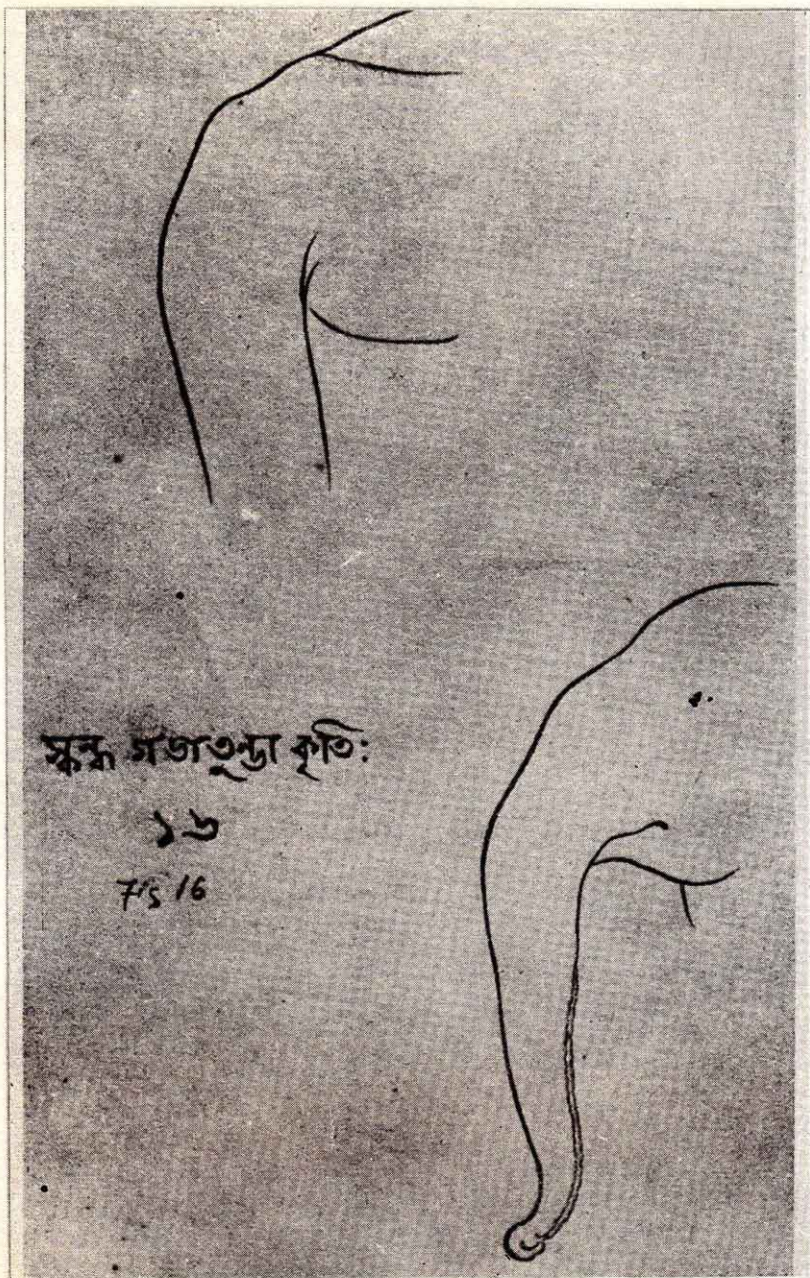 স্কন্ধ গজতুন্ডা কৃতি:
১৬
Fig 16